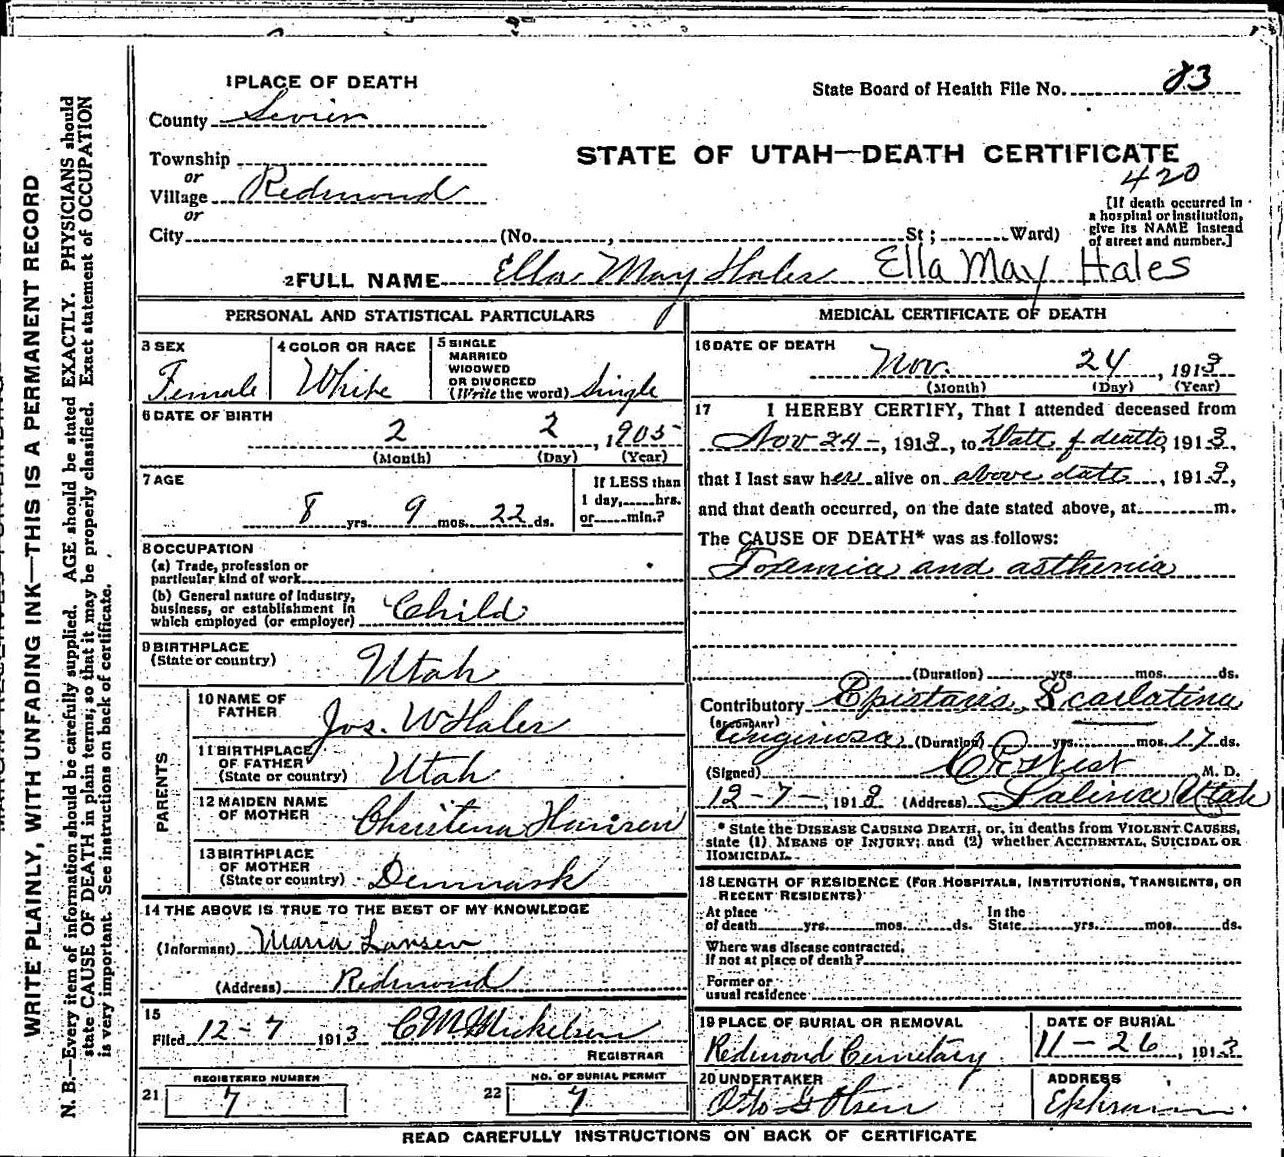 1 PLACE OF DEATH
State Board of Health File No. 83
County Sevier
STATE OF UTAH—DEATH CERTIFICATE
420
Township
or
Village Redmond
or
City (No. , St; Ward)
[If death occurred in
a hospital or institution,
give its NAME instead
of street and number.]
2 FULL NAME Ella May Hales Ella May Hales
PERSONAL AND STATISTICAL PARTICULARS
3 SEX
Female
4 COLOR OR RACE
White
5 SINGLE
MARRIED
WIDOWED
OR DIVORCED
(Write the word) Single
6 DATE OF BIRTH
2 2, 1905
(Month) (Day) (Year)
7 AGE
8 yrs. 9 mos. 22 ds.
If LESS than
1 day, hrs.
or min.?
8 OCCUPATION
(a) Trade, profession or
particular kind of work
(b) General nature of industry,
business, or establishment in
which employed (or employer) Child
9 BIRTHPLACE
(State or country) Utah
PARENTS
10 NAME OF
FATHER Jos. W Hales
11 BIRTHPLACE
OF FATHER
(State or country) Utah
12 MAIDEN NAME
OF MOTHER Christena Hansen
13 BIRTHPLACE
OF MOTHER
(State or country) Denmark
14 THE ABOVE IS TRUE TO THE BEST OF MY KNOWLEDGE
(Informant) Maria Larsen
(Address) Redmond
15
Filed 12-7 1913 C M Mickelsen
REGISTRAR
REGISTERED NUMBER
21 7
NO. OF BURIAL PERMIT
22 7
MEDICAL CERTIFICATE OF DEATH
16 DATE OF DEATH
Nov. 24, 1913
(Month) (Day) (Year)
17 I HEREBY CERTIFY, That I attended deceased from
Nov 24-, 1913, to Date of death, 1913,
that I last saw her alive on above date, 1913,
and that death occurred, on the date stated above, at m.
The CAUSE OF DEATH* was as follows:
Toxemia and asthenia
(Duration) yrs. mos. ds.
Contributory Epistaxis, Scarlatina
(SECONDARY)
anginosa (Duration) yrs. mos. 17 ds.
(Signed) M. D.
12-7-, 1913 (Address) Salina Utah
* State the DISEASE CAUSING DEATH, or, in deaths from VIOLENT CAUSES,
state (1) MEANS OF INJURY; and (2) whether ACCIDENTAL, SUICIDAL OR
HOMICIDAL.
18 LENGTH OF RESIDENCE (FOR HOSPITALS, INSTITUTIONS, TRANSIENTS, OR
RECENT RESIDENTS)
At place
of death yrs. mos. ds.
In the
State yrs. mos. ds.
Where was disease contracted,
If not at place of death?
Former or
usual residence
19 PLACE OF BURIAL OR REMOVAL
Redmond Cemetary
DATE OF BURIAL
11-26, 1913
20 UNDERTAKER
Otto G Olsen
ADDRESS
Ephraim
READ CAREFULLY INSTRUCTIONS ON BACK OF CERTIFICATE
WRITE PLAINLY, WITH UNFADING INK—THIS IS A PERMANENT RECORD
N. B.—Every item of information should be carefully supplied. AGE should be stated EXACTLY. PHYSICIANS should
state CAUSE OF DEATH in plain terms, so that it may be properly classified. Exact statement of OCCUPATION
is very important. See instructions on back of certificate.